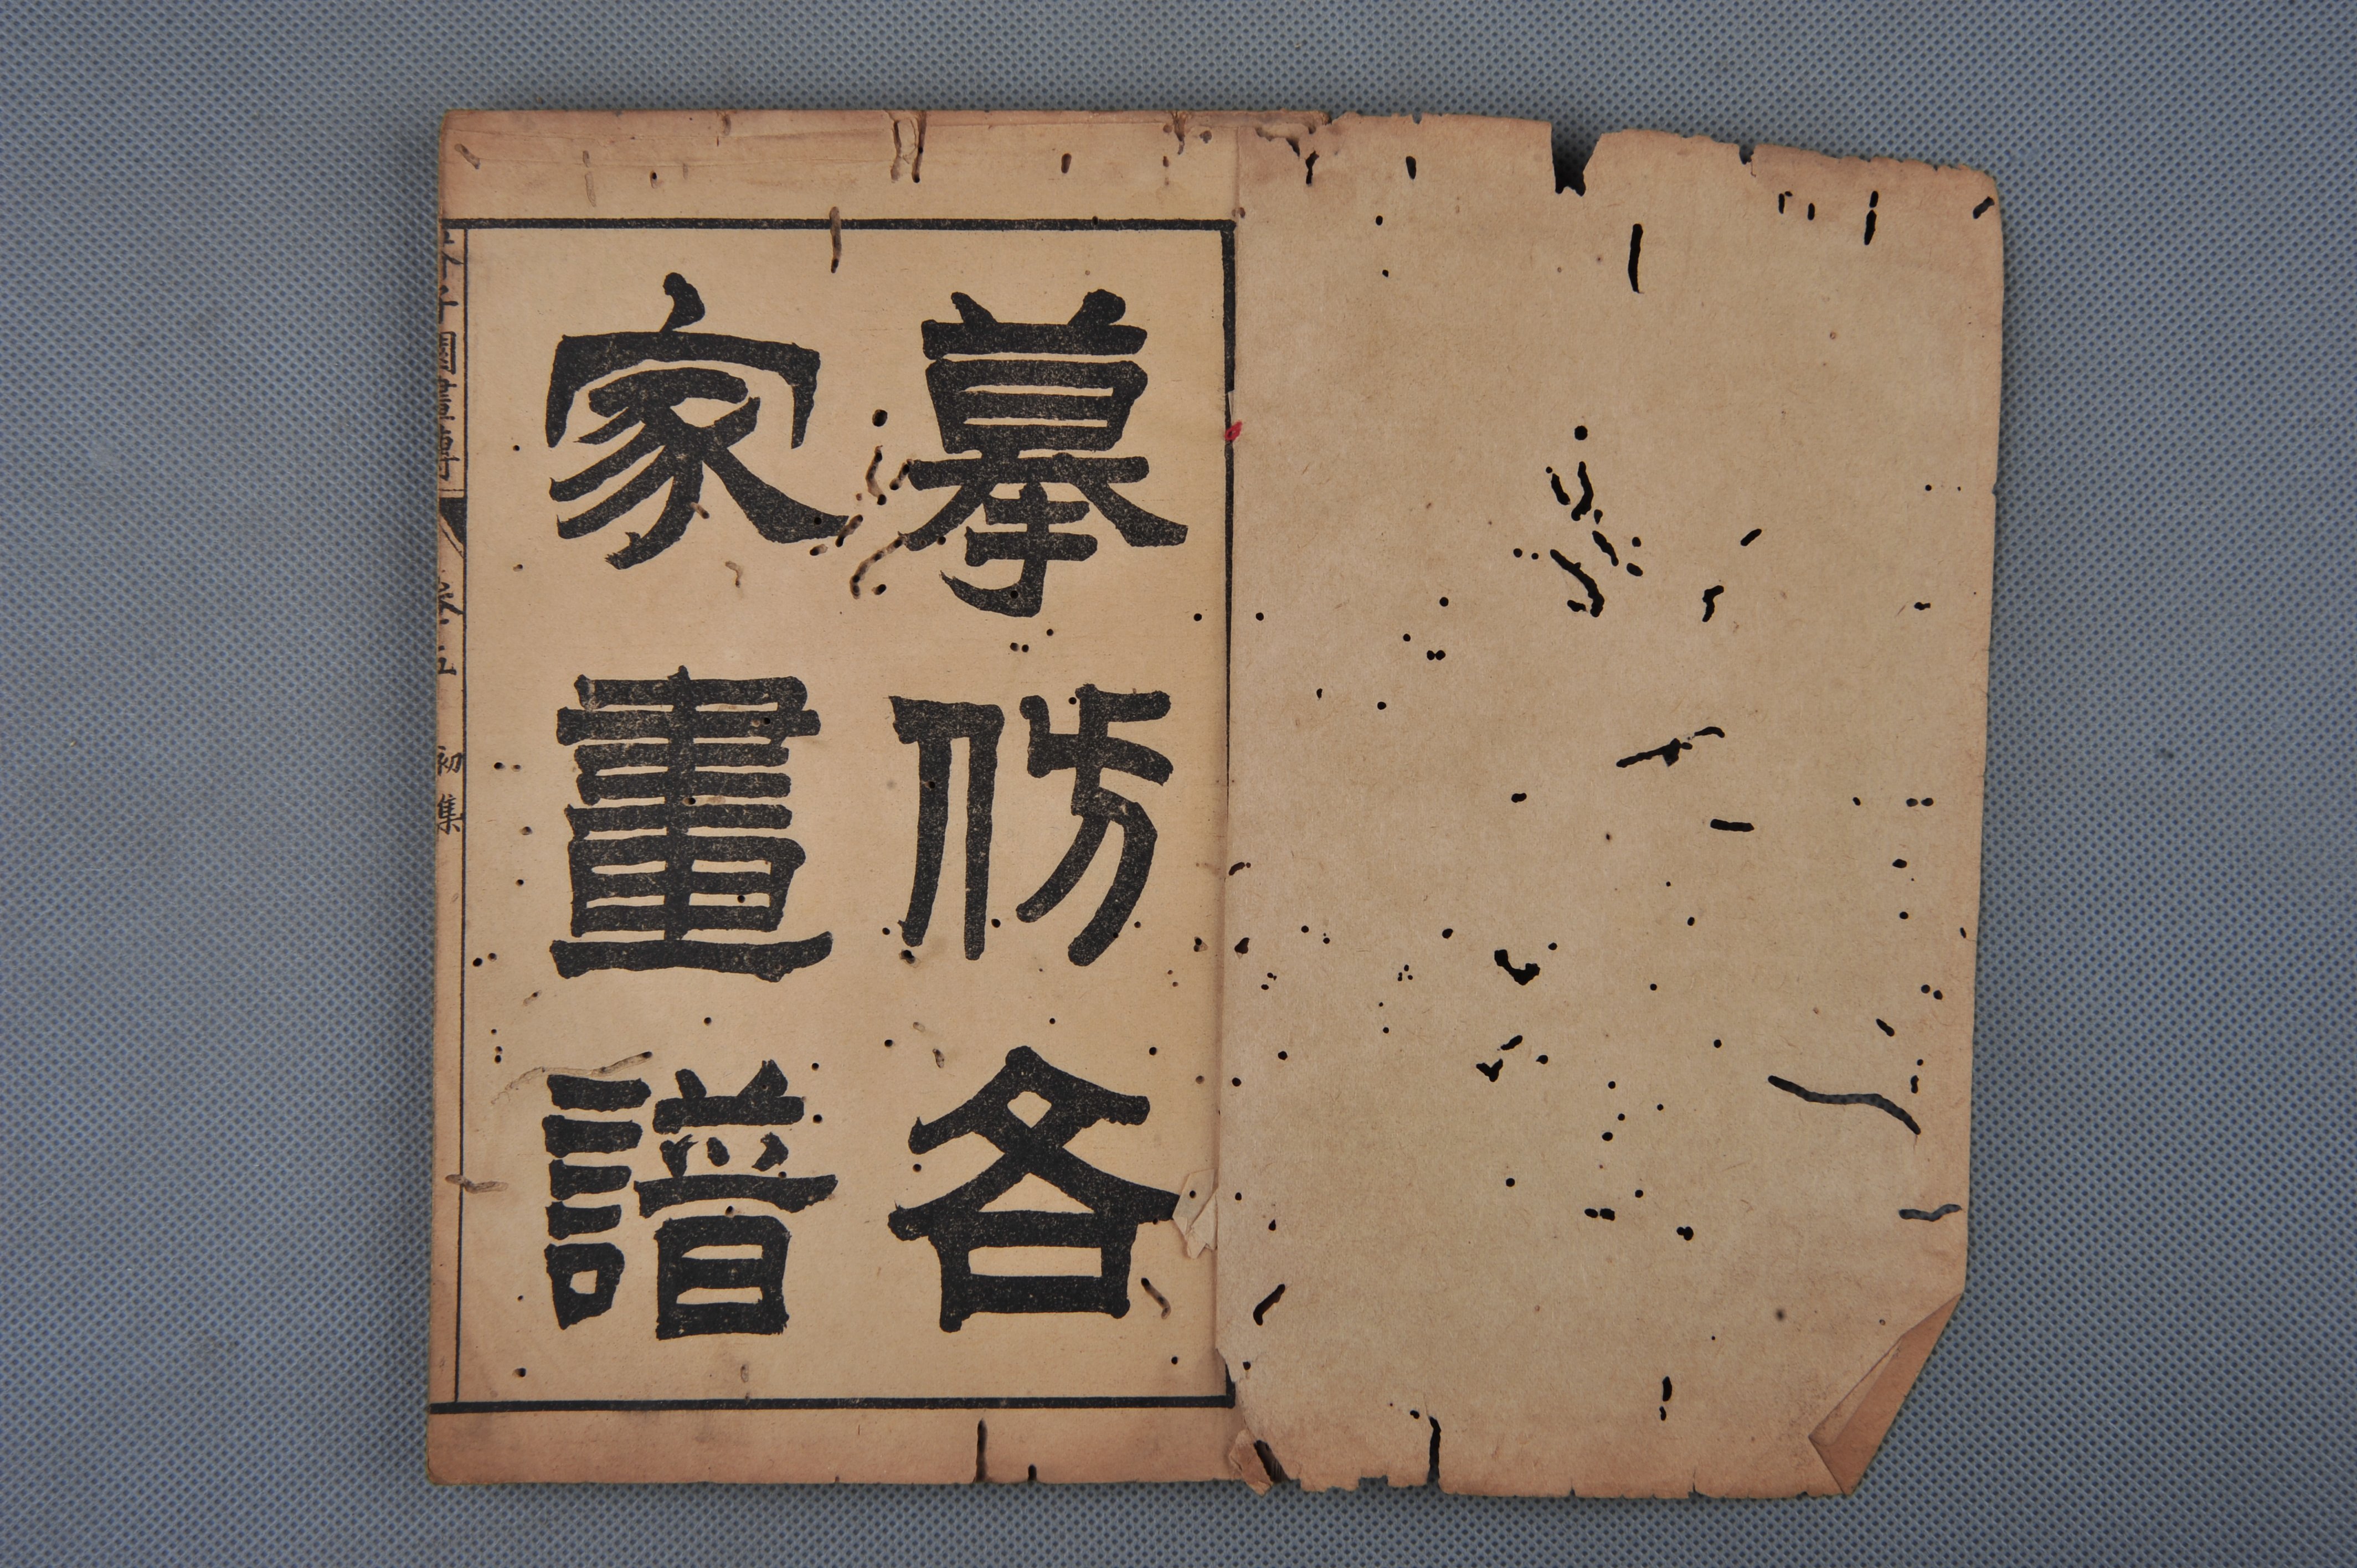 摹仿各
家畫譜
芥子園畫傳 卷五 初集